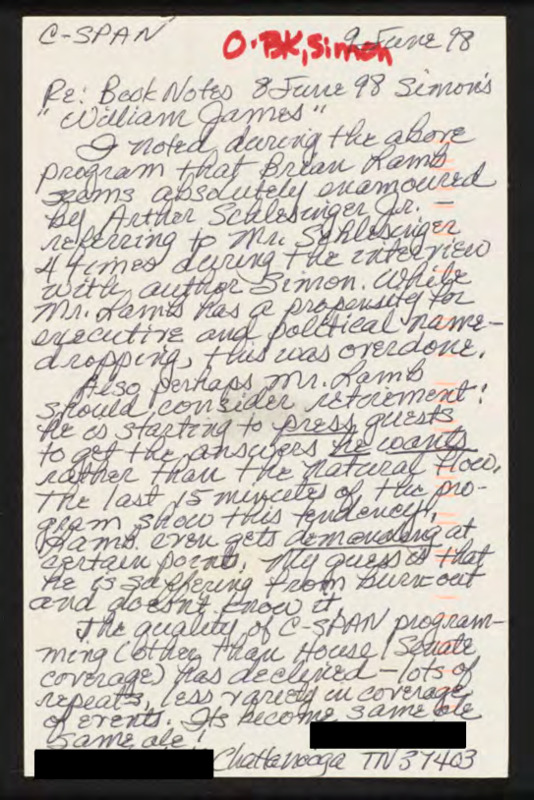 C-SPAN O.BK, Simon 9 June 98
Re: Book Notes 8 June 98 Simon's
"William James"
I noted during the above
program that Brian Lamb
seems absolutely enamoured
by Arther Schlesinger Jr. –
referring to Mr. Schlesinger
4 times during the interview
with author Simon. While
Mr. Lamb has a propensity for
executive and political name-
dropping, this was overdone.
Also perhaps Mr. Lamb
should consider retirement!
He is starting to press guests
to get the answers he wants
rather than the natural flow.
The last 15 minutes of the pro-
gram show this tendency.
Lamb even gets demanding at
certain points. My guess is that
he is suffering from burnout
and doesn't know it.
The quality of C-SPAN program-
ming (other than House/Senate
coverage) has declined – lots of
repeats, less variety in coverage
of events. Its become same ole
same ole!
Chattanooga TN 37403